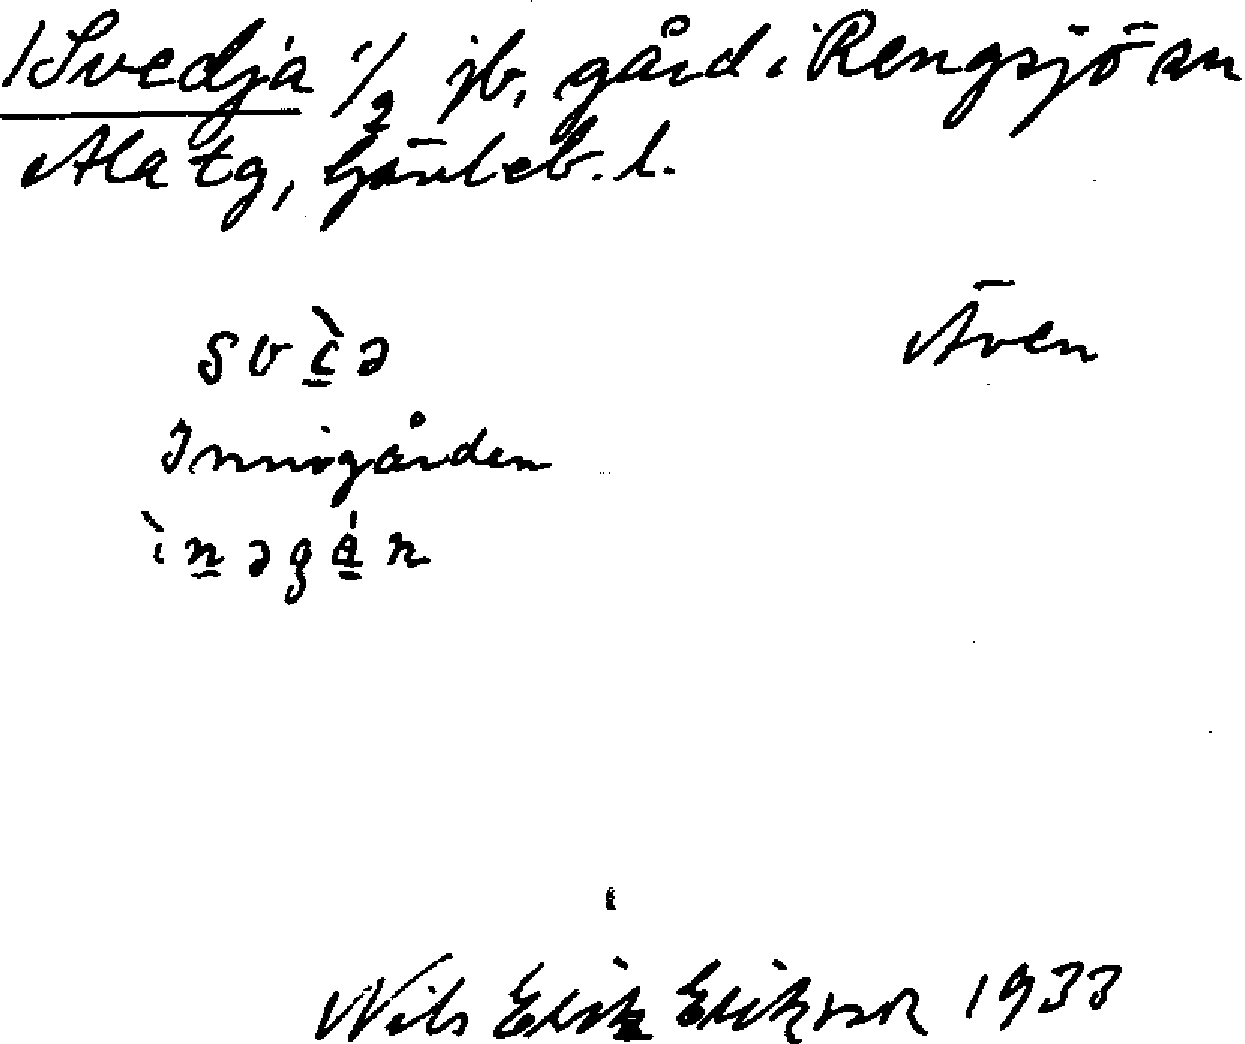 1 Svedja 1/2 jb, gård i Rengsjö sn
Ala tg, Gävleb. l.
svì̱ə Även
Innigården
ìṉəgá̱n
Nils Erik Erikson 1933